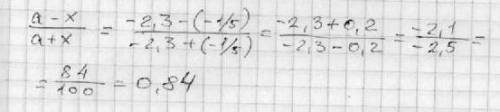 (a - x)/(a + x) = (-2,3 - (-1/5))/(-2,3 + (-1/5)) = (-2,3 + 0,2)/(-2,3 - 0,2) = (-2,1)/(-2,5) =
= 84/100 = 0,84